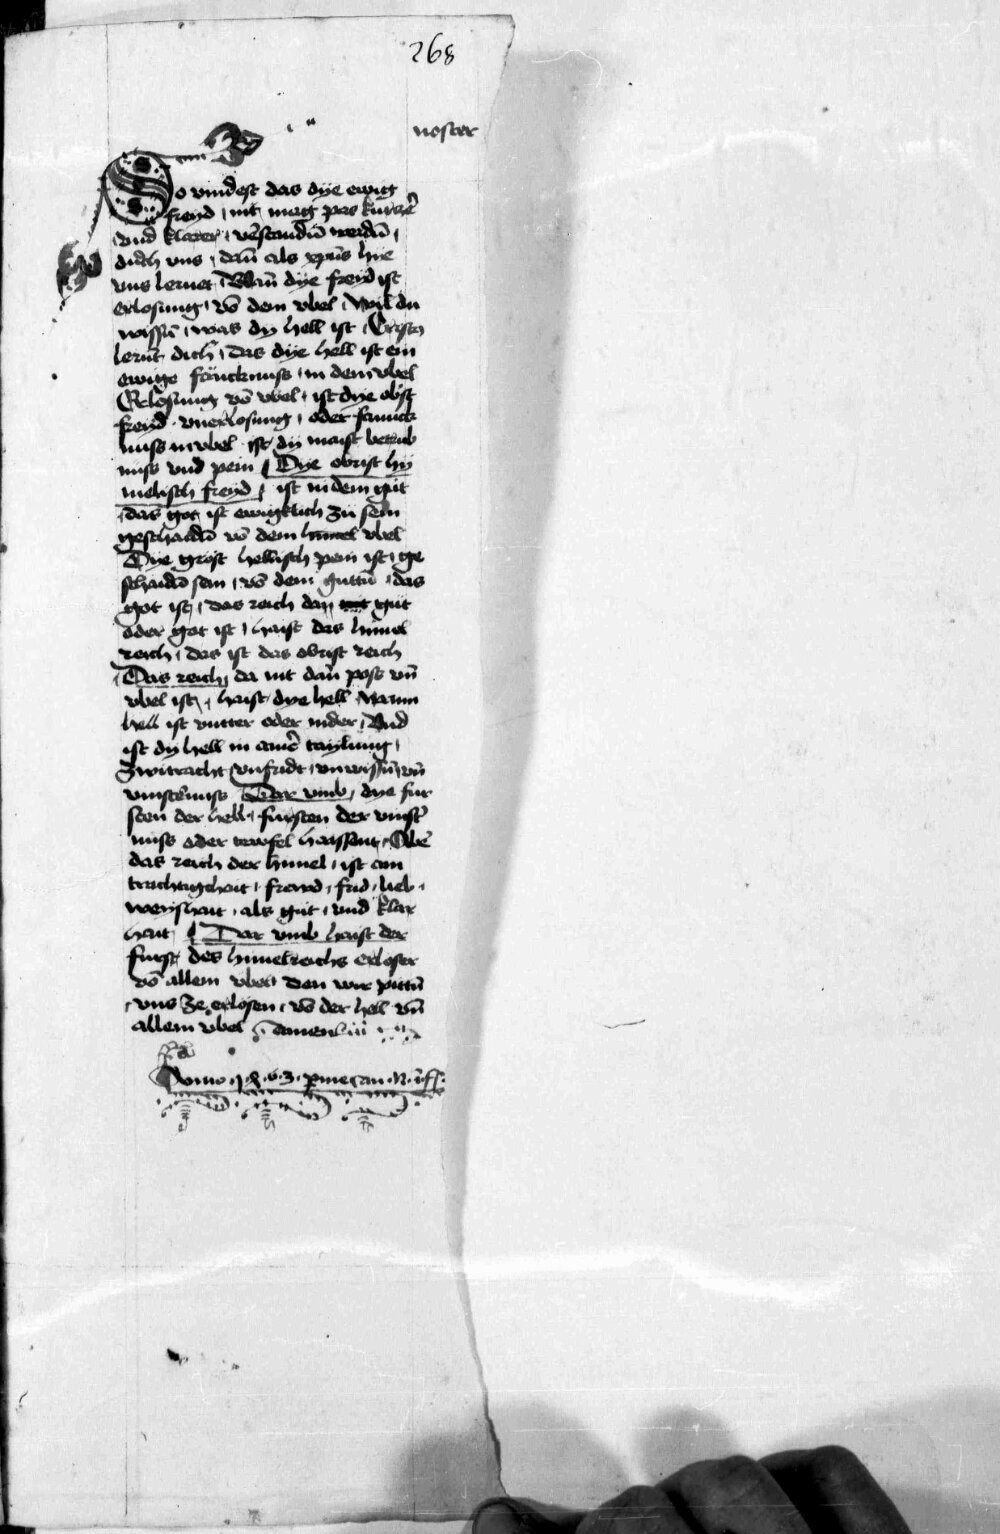 268
noster
So vindest das dye ewig
freyd nit mag pas kurczer̄
vnd klarer v̄standn̄ werdn̄
durch vns dan̄ als xp̄us hye
vns lernet Wan̄ dye freyd ist
erlosung võ dem vbel Wil du
wissn̄ was dy hell ist Cristus
lernt dich das dye hell ist ein
ewige fäncknuss in dem vbel
Erlosung võ vbel ist dye obrist
freyd vnerlosung oder fanck
nuss in vbel ist dy maist betrub
nuss vnd pein Dye obrist hy
melisch freyd ist in dem güt
das got ist ewigklich zü sein
geschaidn̄ võ dem vbel
Dye gröst hellisch pein ist ge
schaidn̄ sein võ dem guttn̄ das
got ist das reich dar güt
oder got ist haist das himel
reich das ist das obrist reich
Das reich da nit dan̄ poss vn̄
vbel ist haist dye hell wann
hell ist vntter oder nider Vnd
ist dy hell in ainer̄ taylung
Zwitracht vnfridt vnwissn̄ vn̄
vinsternuss Dar vmb dye fur
sten der hell fursten der vinster̄
nuss oder tewfel haissent Aber̄
das reich der himel ist ain
trachtigchait frewd frid lieb
weyshait als güt vnd klar
hait Dar vmb haist der
furst des himelreichs erloser
võ allem vbel den wir pittn̄
vns ze erlosen võ der hell vn̄
allem vbel Amen